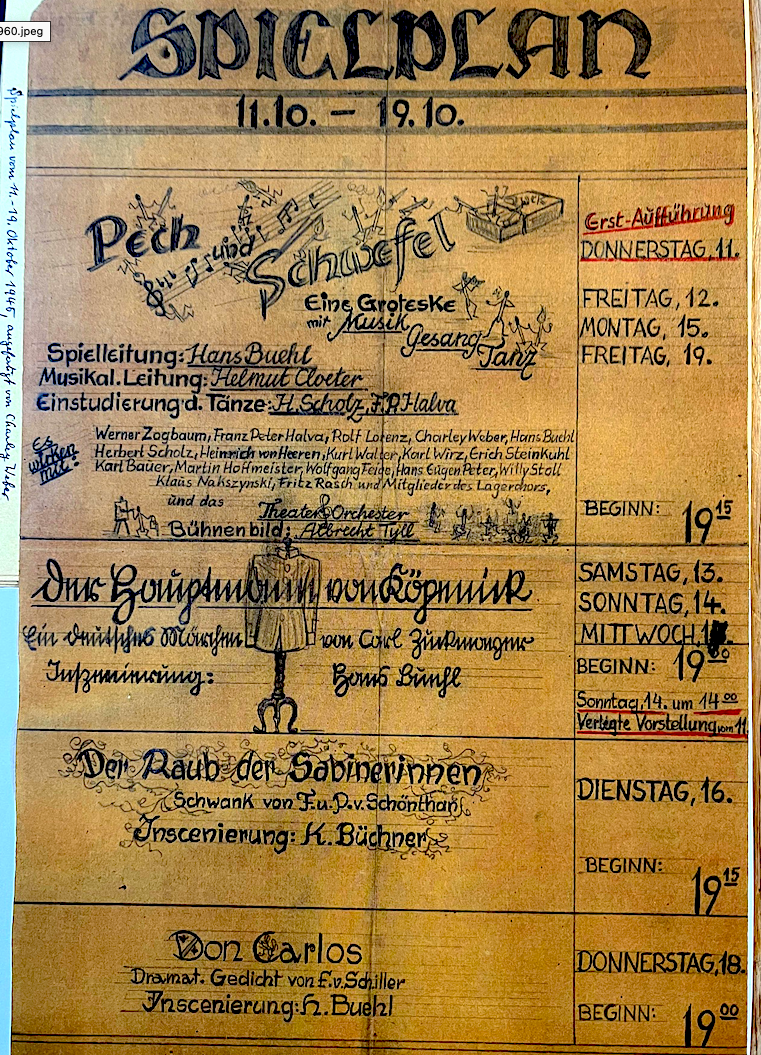 960.jpeg
SPIELPLAN
11.10. – 19.10.
Spielplan vom 11.-19. Oktober 1945, angefertigt von Charley Weber
Pech und Schwefel
Eine Groteske
mit Musik
Gesang
Tanz
Spielleitung: Hans Buehl
Musikal. Leitung: Helmut Cloeter
Einstudierung d. Tänze: H. Scholz, F.P. Halva
Es wirken mit:
Werner Zogbaum, Franz Peter Halva, Rolf Lorenz, Charley Weber, Hans Buehl
Herbert Scholz, Heinrich von Heeren, Kurt Walter, Karl Wirz, Erich Steinkuhl
Karl Bauer, Martin Hoffmeister, Wolfgang Feige, Hans Eugen Peter, Willy Stoll
Klaus Nakszynski, Fritz Rasch und Mitglieder des Lagerchors,
und das
Theater-Orchester
Bühnenbild: Albrecht Tyll
Erst-Aufführung
DONNERSTAG, 11.
FREITAG, 12.
MONTAG, 15.
FREITAG, 19.
BEGINN: 19 15
Der Hauptmann von Köpenick
Ein deutsches Märchen von Carl Zuckmayer
Inszenierung: Hans Buehl
SAMSTAG, 13.
SONNTAG, 14.
MITTWOCH,
BEGINN: 19 00
Sonntag, 14. um 14 00
Verlegte Vorstellung vom 11.
Der Raub der Sabinerinnen
Schwank von F. u. P. v. Schönthan
Inscenierung: K. Büchner
DIENSTAG, 16.
BEGINN:
19 15
Don Carlos
Dramat. Gedicht von F. v. Schiller
Inscenierung: H. Buehl
DONNERSTAG, 18.
BEGINN: 19 00